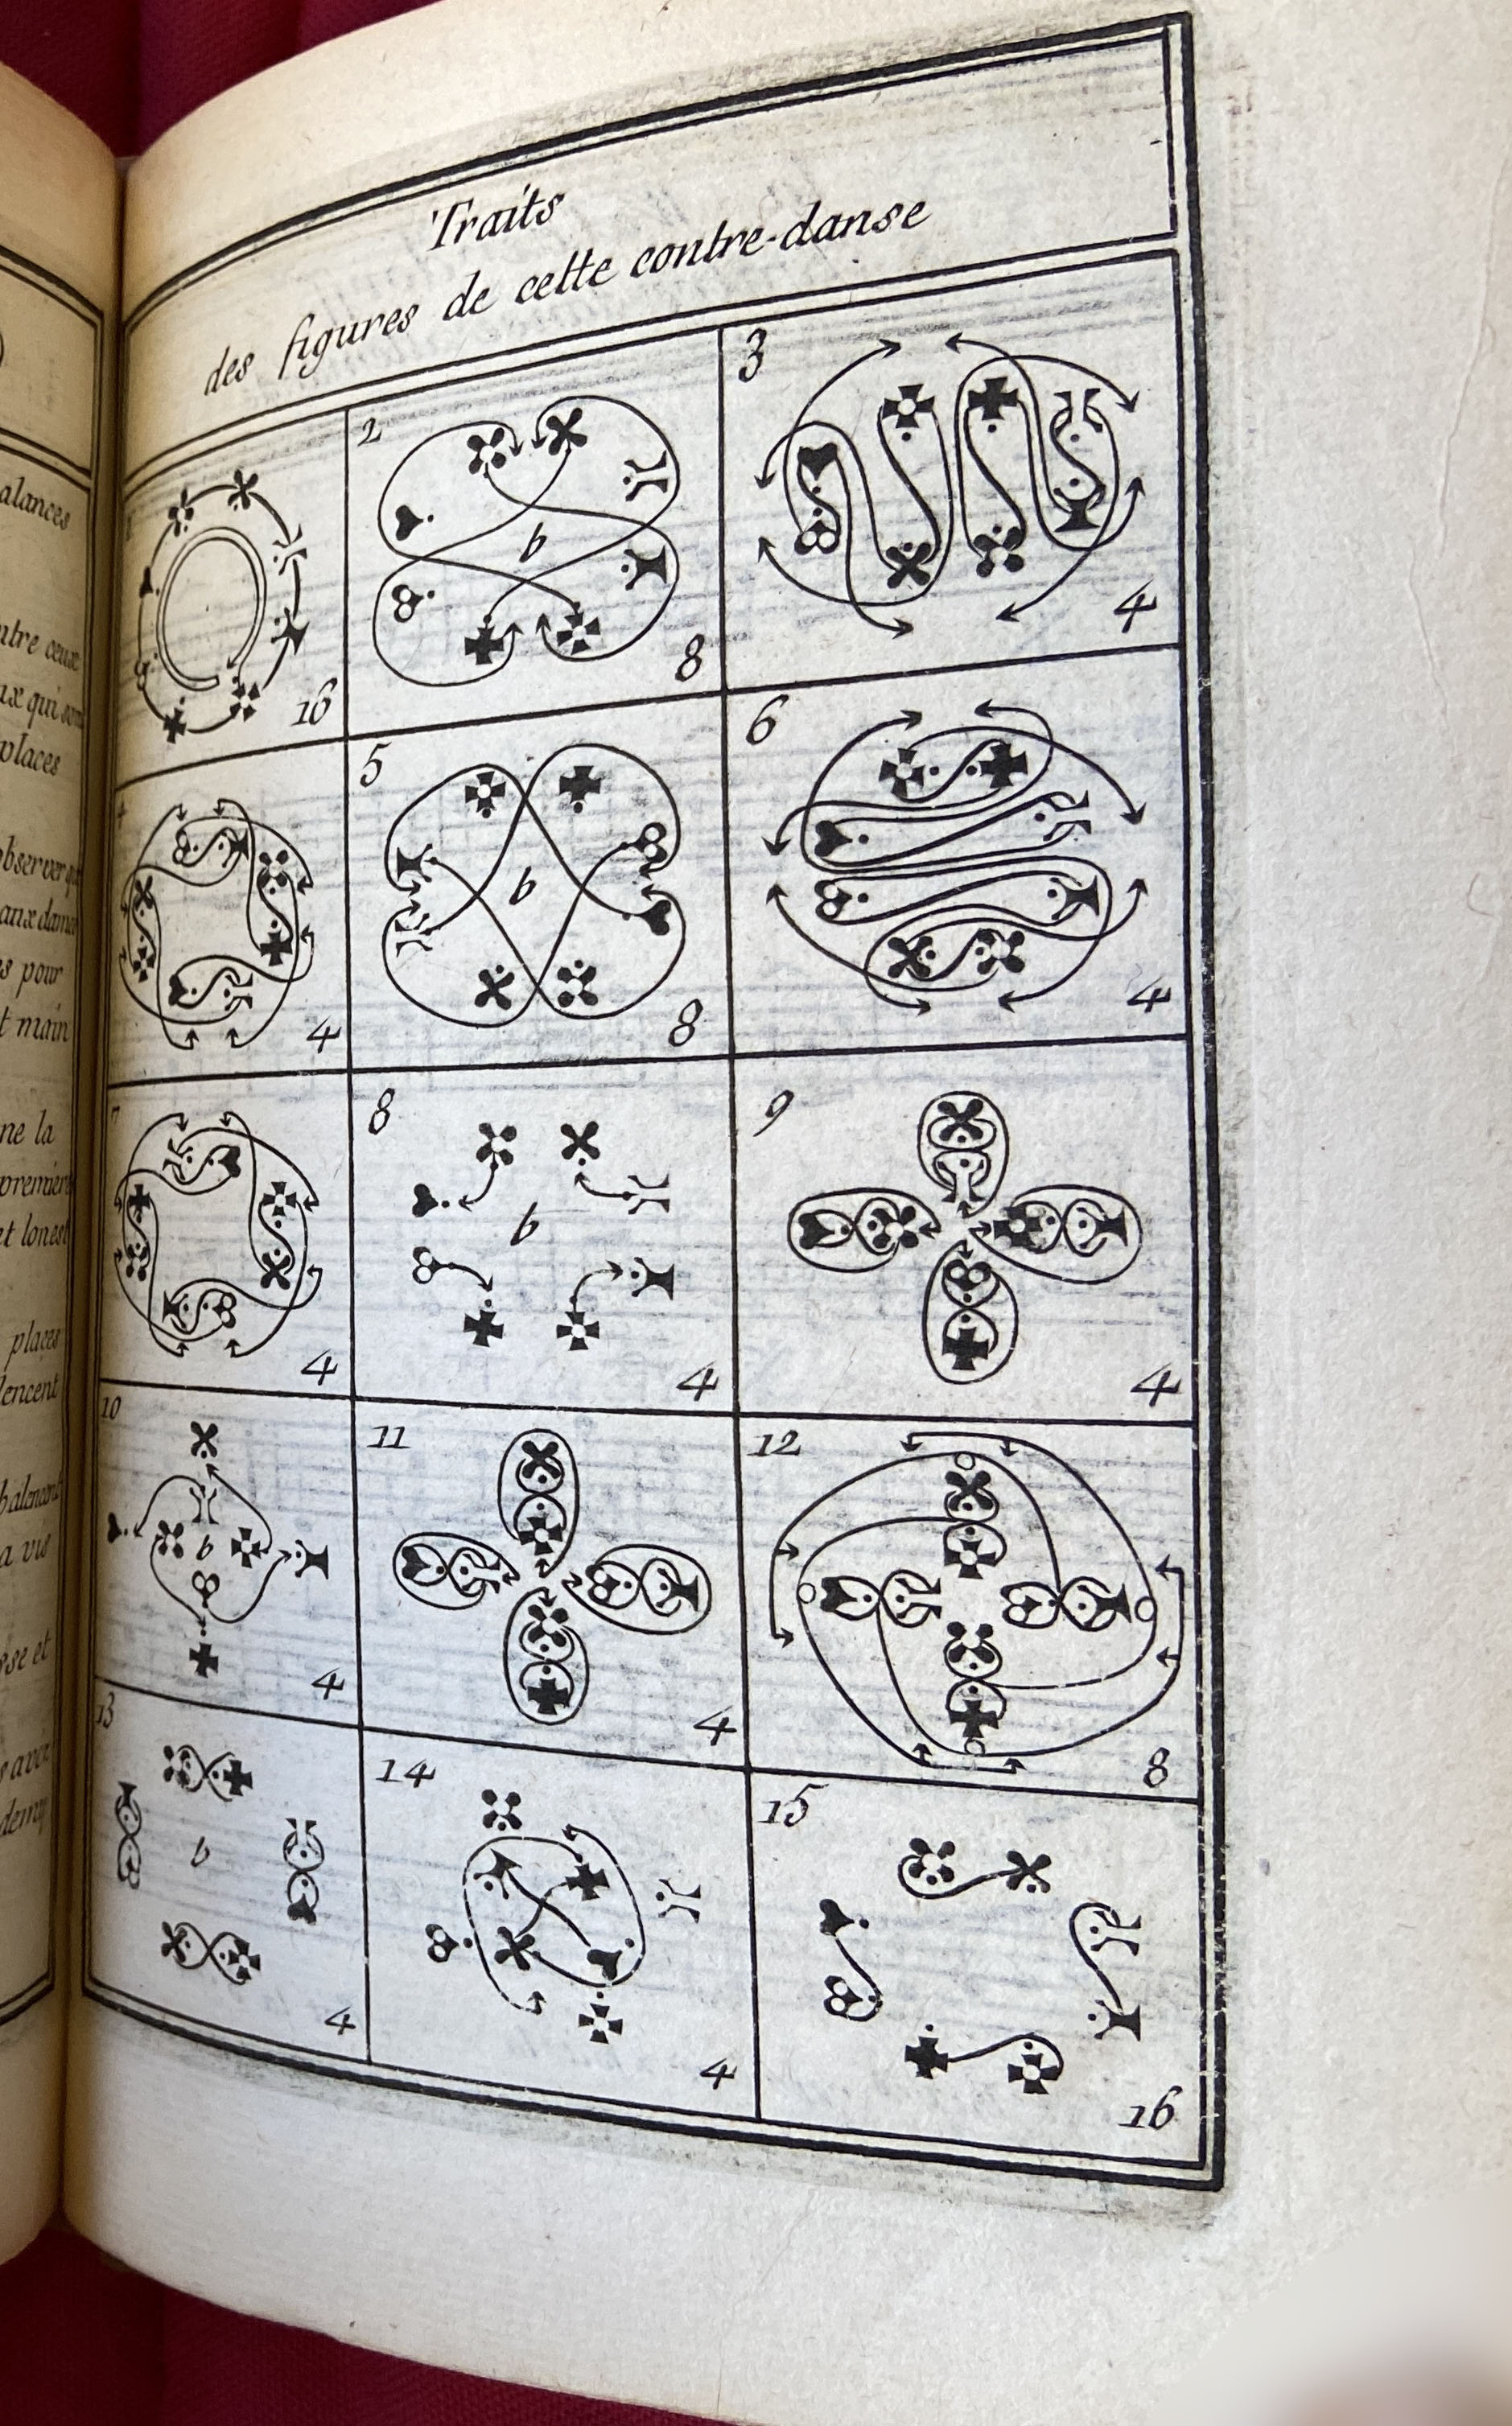 Traits
des figures de cette contre-danse
16
2
b
8
3
4
4
4
5
b
8
6
4
7
4
8
b
4
9
4
10
b
4
11
4
12
8
13
b
4
14
4
15
16
alances
ntre ceux
ux qui sont
places
observer
aux dames
es pour
t main
ne la
premiere
et lonest
places
lencent
balencent
a vis
sse et
s avec
demy